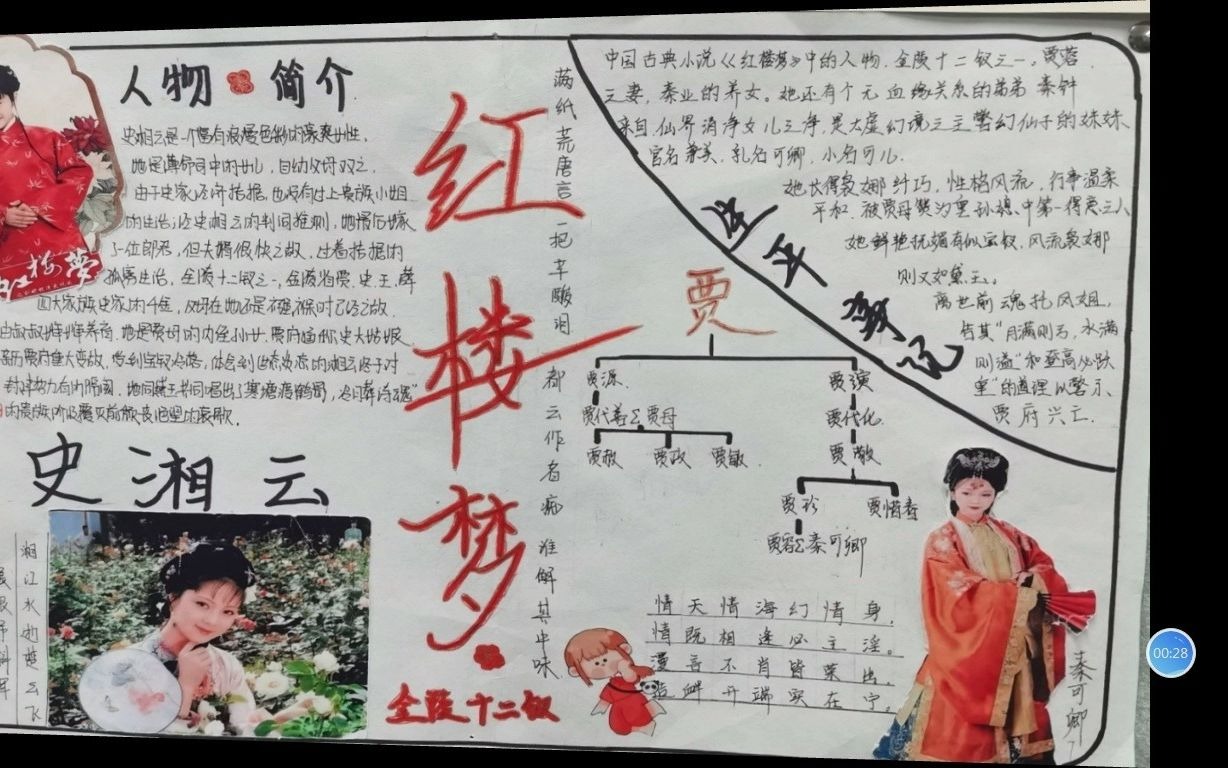 人物简介
史湘云是一个富有浪漫色彩的豪爽女性，
她是薄命司中的女儿，自幼父母双亡，
由于史家经济拮据，也没有过上贵族小姐
的生活；从史湘云的判词推测，她最后嫁
了一位郎君，但夫婿很快亡故，过着拮据的
孤寡生活，金陵十二钗之一，金陵省贾、史、王、薛
四大家族史家的千金，
封建势力有所隔阂，她同黛玉共同唱出"寒塘渡鹤影，冷月葬诗魂"
史湘云
湘江水逝楚云飞
红楼梦
金陵十二钗
满纸荒唐言一把辛酸泪
都云作者痴谁解其中味
中国古典小说《红楼梦》中的人物，金陵十二钗之一，贾蓉
之妻，秦业的养女。她还有个无血缘关系的弟弟秦钟
来自仙界清净女儿之净，是太虚幻境之主警幻仙子的妹妹
官名兼美，乳名可卿，小名可儿.
她长得袅娜纤巧，性格风流，行事温柔
平和，被贾母赞为重孙媳中第一得意之人
她鲜艳抚媚有似宝钗，风流袅娜
则又如黛玉。
离世前魂托凤姐，
告其"月满则亏，水满
则溢"和"登高必跌
重"的道理以警示
贾府兴亡.
生平事记
贾
贾源
贾演
贾代善 贾母
贾代化
贾赦 贾政 贾敏
贾敬
贾珍 贾惜春
贾蓉 秦可卿
情天情海幻情身，
情既相逢必主淫。
漫言不肖皆荣出，
造衅开端实在宁。
秦可卿
00:28